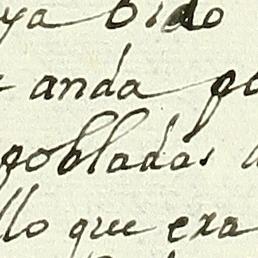 ya bido
anda po
pobladas
llo que exa